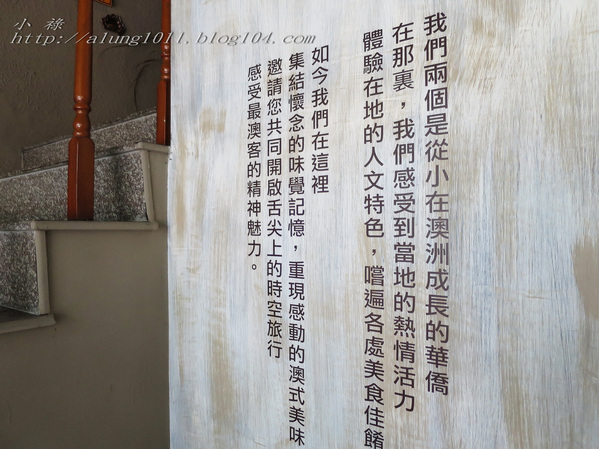 小祿
http://alung1011.blog104.com
我們兩個是從小在澳洲成長的華僑
在那裏，我們感受到當地的熱情活力
體驗在地的人文特色，嚐遍各處美食佳餚
如今我們在這裡
集結懷念的味覺記憶，重現感動的澳式美味
邀請您共同開啟舌尖上的時空旅行
感受最澳客的精神魅力。